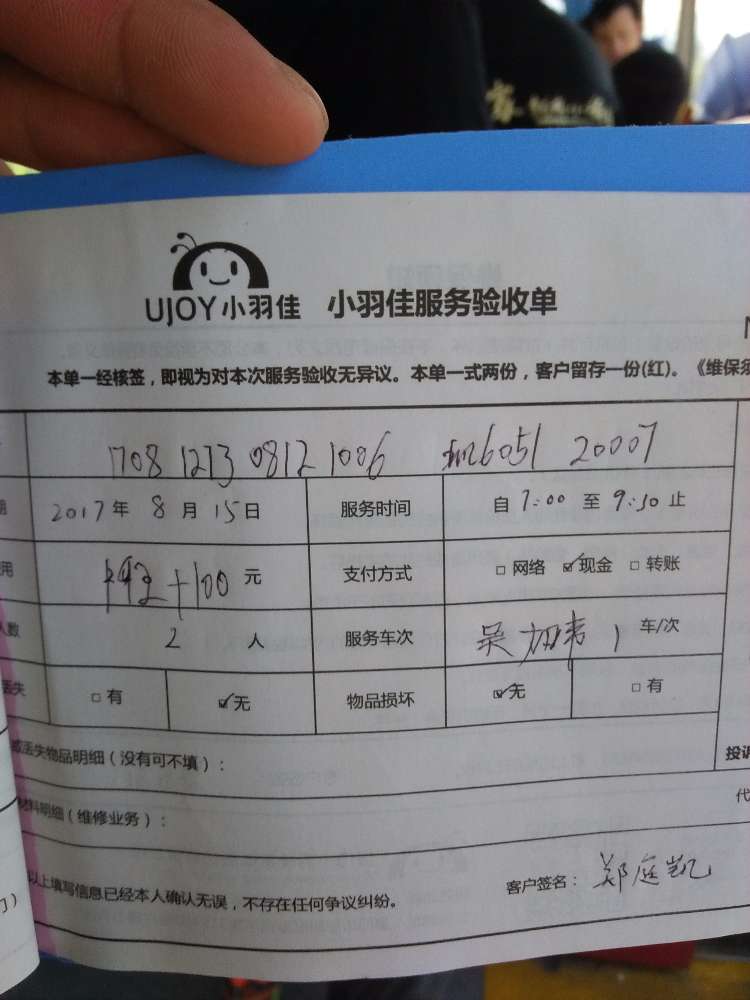 UJOY小羽佳 小羽佳服务验收单
本单一经核签，即视为对本次服务验收无异议。本单一式两份，客户留存一份(红)。《维保须
1708 1273 0812 1006 6051 20007
期 2017年 8月 15日 服务时间 自 7:00 至 9:30 止
用 192+100 元 支付方式 □ 网络 ☑ 现金 □ 转账
人数 2 人 服务车次 吴 1 车/次
丢失 □ 有 ☑ 无 物品损坏 ☑ 无 □ 有
或丢失物品明细（没有可不填）： 投诉
材料明细（维修业务）： 代
以上填写信息已经本人确认无误，不存在任何争议纠纷。 客户签名：郑庭凯